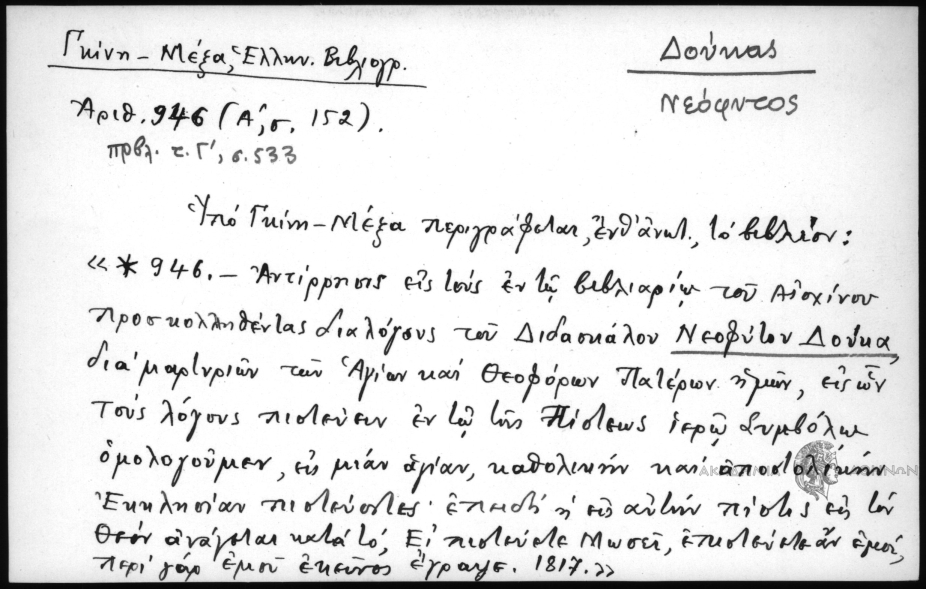 Γκίνη – Μέξα, Ἑλλην. Βιβλιογρ.
Δούκας
Νεόφυτος
Ἀριθ. 946 (Α΄, σ. 152).
πρβλ. τ. Γ΄, σ. 533
Ὑπό Γκίνη – Μέξα περιγράφεται, ἔνθ' ἀνωτ., τό βιβλίον:
«* 946. – Ἀντίρρησις εἰς τούς ἐν τῷ βιβλιαρίῳ τοῦ Αἰσχίνου
προσκολληθέντας διαλόγους τοῦ Διδασκάλου Νεοφύτου Δούκα,
διά μαρτυριῶν τῶν Ἁγίων καί Θεοφόρων Πατέρων ἡμῶν, εἰς ὧν
τούς λόγους πιστεύειν ἐν τῷ τῆς Πίστεως ἱερῷ Συμβόλῳ
ὁμολογοῦμεν, εἰς μίαν ἁγίαν, καθολικήν καί ἀποστολικήν
Ἐκκλησίαν πιστεύοντες· ἐπειδή ἡ εἰς αὐτήν πίστις εἰς τόν
Θεόν ἀνάγεται κατά τό, Εἰ πιστεύετε Μωσεῖ, ἐπιστεύετε ἄν ἐμοί,
περί γάρ ἐμοῦ ἐκεῖνος ἔγραψε. 1817.»